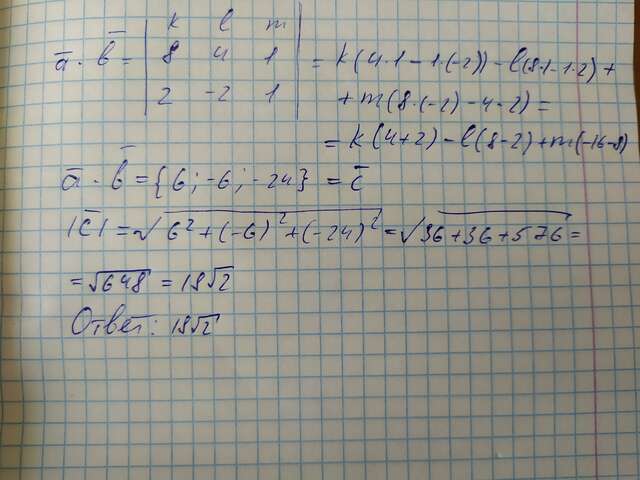 k l m
a̅ · b̅ = | 8 4 1 | = k(4·1 - 1·(-2)) - l(8·1 - 1·2) +
2 -2 1 + m(8·(-2) - 4·2) =
= k(4+2) - l(8-2) + m(-16-8)
a̅ · b̅ = {6; -6; -24} = c̅
|c̅| = √6² + (-6)² + (-24)² = √36+36+576 =
= √648 = 18√2
Ответ: 18√2